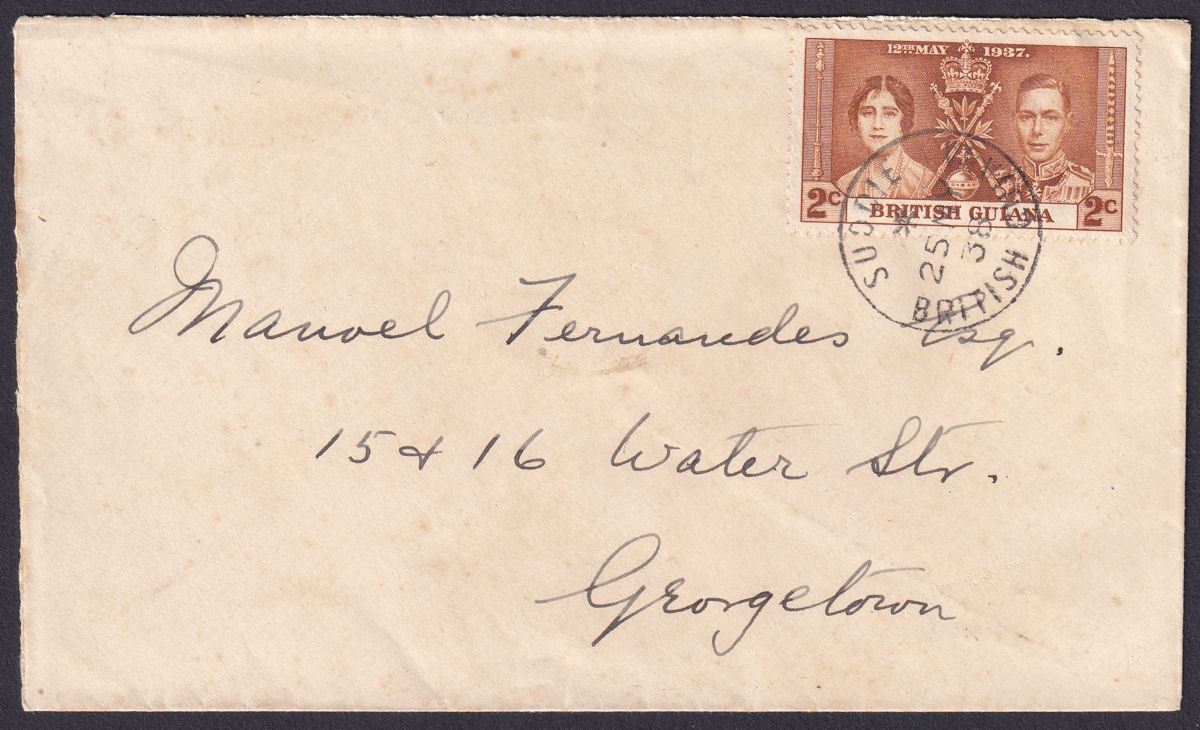 12TH MAY 1937.
2C BRITISH GUIANA 2C
SUDDIE
25 MY
38
BRITISH
Manoel Fernandes Esq.
15 & 16 Water Str.
Georgetown